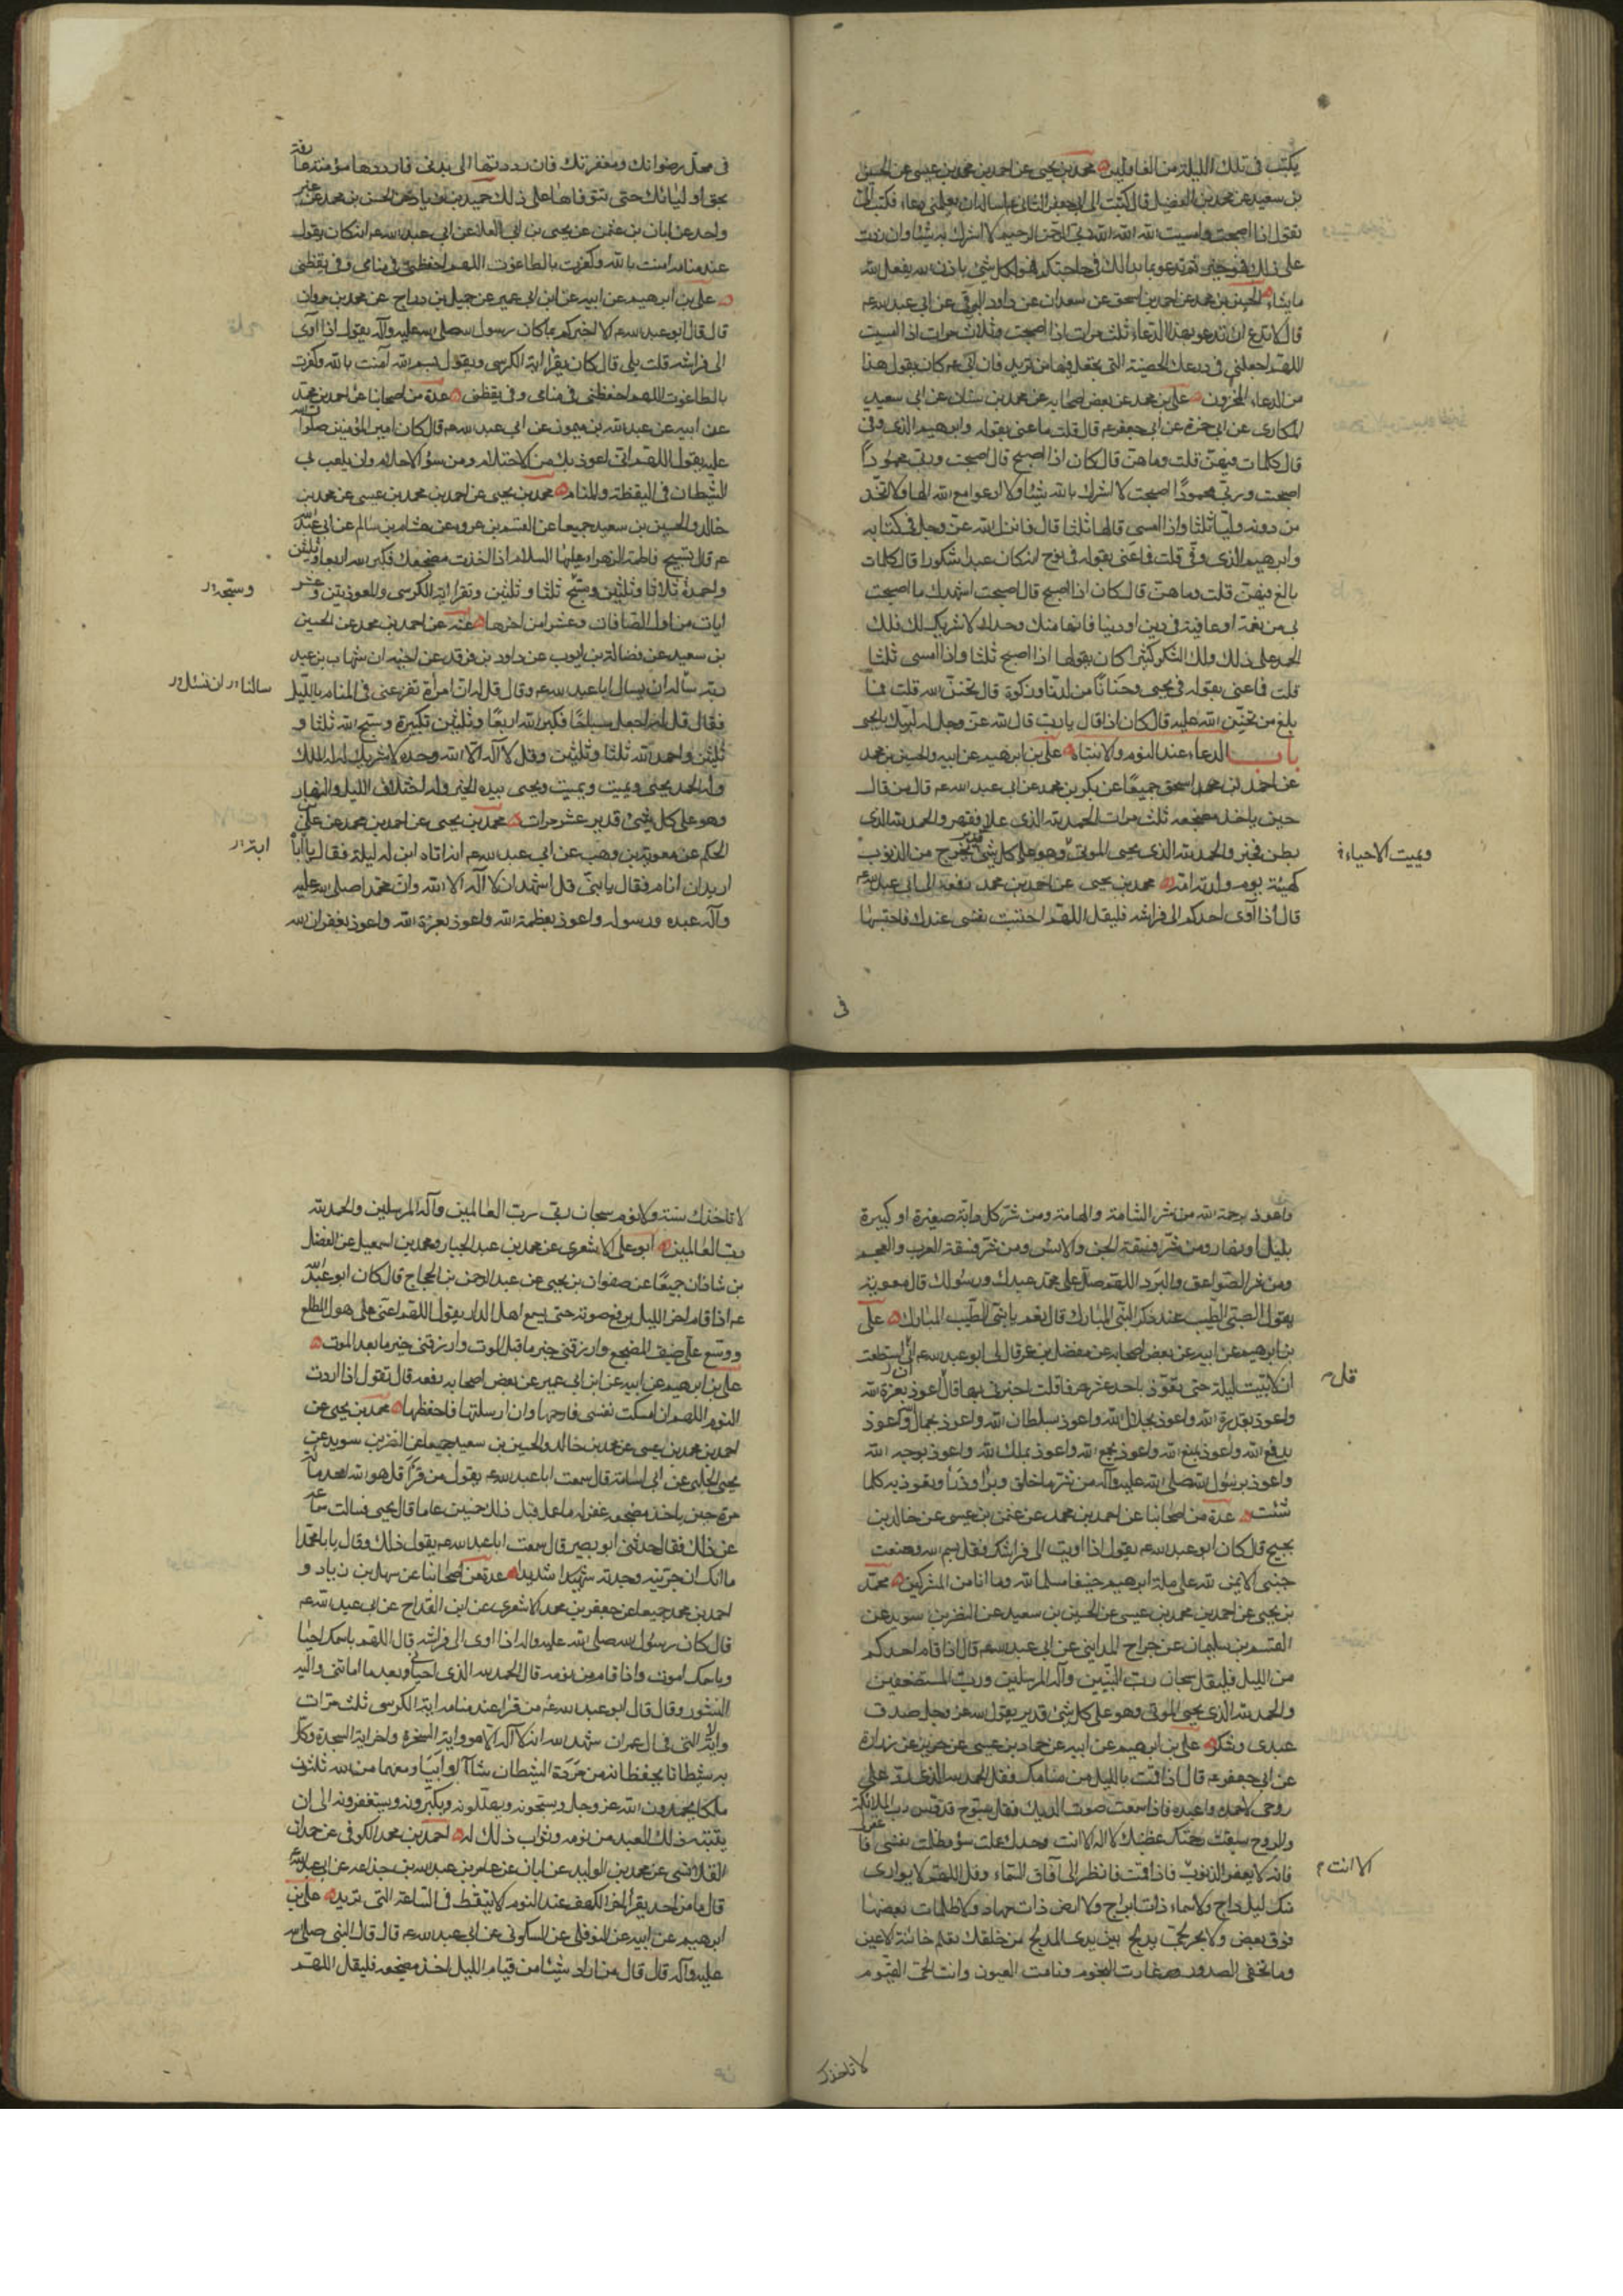 يكتب في تلك الليلة من الغافلين محمد بن يحيى عن احمد بن محمد بن عيسى عن الحسين
بن سعيد عن محمد بن الفضيل قال كتبت الى ابي جعفر الثاني اساله ان يعلمني دعاء فكتب الى
تقول اذا اصبحت وامسيت الله الله الله ربي الرحمن الرحيم لا اشرك به شيئا وان زدت
على ذلك فهو خير ثم تدعو بما بدا لك في حاجتك فهو لكل شئ باذن الله يفعل الله
ما يشاء الحسين بن محمد عن احمد بن اسحق عن سعدان عن داود الرقي عن ابي عبد الله ع
قال لا تدع ان تدعو بهذا الدعاء ثلث مرات اذا اصبحت وثلاث مرات اذا امسيت
اللهم اجعلني في درعك الحصينة التي تجعل فيها من تريد فان ابي ع كان يقول هذا
من الدعاء المخزون علي بن محمد عن بعض اصحابه عن محمد بن سنان عن ابي سعيد
المكاري عن ابي حمزة عن ابي جعفر ع قال قلت ما عنى بقوله وابرهيم الذي وفى
قال كلمات فيهن قلت وما هن قال كان اذا اصبح قال اصبحت وربي محمودًا
اصبحت وربي محمودًا اصبحت لا اشرك بالله شيئا ولا ادعو مع الله الها ولا اتخذ
من دونه وليا ثلثا واذا امسى قالها ثلثا قال فانزل الله عز وجل في كتابه
وابرهيم الذي وفى قلت فما عنى بقوله في نوح انه كان عبدا شكورا قال كلمات
بالغ فيهن قلت وما هن قال كان اذا اصبح قال اصبحت اشهدك ما اصبحت
بي من نعمة او عافية في دين او دنيا فانها منك وحدك لا شريك لك فلك
الحمد على ذلك ولك الشكر كثيرا كان يقولها اذا اصبح ثلثا واذا امسى ثلثا
قلت فما عنى بقوله في يحيى وحنانًا من لدنا وزكوة قال تحنن الله قلت فما
بلغ من تحنن الله عليه قال كان اذا قال يا رب قال الله عز وجل له لبيك يا يحيى
باب الدعاء عند النوم والانتباه علي بن ابرهيم عن ابيه والحسين بن محمد
عن احمد بن اسحق جميعًا عن بكر بن محمد عن ابي عبد الله ع قال من قال
حين ياخذ مضجعه ثلث مرات الحمد لله الذي علا فقهر والحمد لله الذي
بطن فخبر والحمد لله الذي يحيى الموتى وهو على كل شئ قدير خرج من الذنوب
كهيئة يوم ولدته امه محمد بن يحيى عن احمد بن محمد رفعه الى ابي عبد الله ع
قال اذا آوى احدكم الى فراشه فليقل اللهم احتبست نفسي عندك فاحتبسها
ويميت الاحياء
في
في محل رضوانك ومغفرتك فان رددتها الى بدني فارددها مؤمنة عارفة
بحق اوليائك حتى تتوفاها على ذلك حميد بن زياد عن الحسن بن محمد عن غير
واحد عن ابان بن عثمن عن يحيى بن ابي العلا عن ابي عبد الله ع انه كان يقول
عند منامه امنت بالله وكفرت بالطاغوت اللهم احفظني في منامي وفي يقظتي
علي بن ابرهيم عن ابيه عن ابن ابي عمير عن جميل بن دراج عن محمد بن مروان
قال قال ابو عبد الله ع الا اخبركم بما كان رسول الله صلى الله عليه وآله يقول اذا آوى
الى فراشه قلت بلى قال كان يقرا اية الكرسي ويقول بسم الله آمنت بالله وكفرت
بالطاغوت اللهم احفظني في منامي وفي يقظتي عدة من اصحابنا عن احمد بن محمد
عن ابيه عن عبد الله بن ميمون عن ابي عبد الله ع قال كان امير المؤمنين صلوات الله
عليه يقول اللهم اني اعوذ بك من الاحتلام ومن سوء الاحلام وان يلعب بي
الشيطان في اليقظة والمنام محمد بن يحيى عن احمد بن محمد بن عيسى عن محمد بن
خالد والحسين بن سعيد جميعا عن القسم بن عروة عن هشام بن سالم عن ابي عبد الله
ع قال تسبيح فاطمة الزهراء عليها السلام اذا اخذت مضجعك فكبر الله اربعا وثلثين
واحمده ثلاثا وثلثين وسبح ثلثا وثلثين وتقرا اية الكرسي والمعوذتين وعشر
ايات من اول الصافات وعشرا من اخرها عنه عن احمد بن محمد عن الحسين
بن سعيد عن فضالة بن ايوب عن داود بن فرقد عن اخيه ان شهاب بن عبد
ربه ساله ان يسال ابا عبد الله ع وقال قل له ان امرأة تفزعني في المنام بالليل
فقال قل له اجعل مسباحًا فكبر الله اربعًا وثلثين تكبيرة وسبح الله ثلثا و
ثلثين واحمد الله ثلثا وثلثين وقل لا آله الا الله وحده لا شريك له له الملك
وله الحمد يحيى ويميت ويميت ويحيى بيده الخير وله اختلاف الليل والنهار
وهو على كل شئ قدير عشر مرات محمد بن يحيى عن احمد بن محمد عن علي بن
الحكم عن معوية بن وهب عن ابي عبد الله ع انه اتاه ابن له ليلة فقال يا ابا
اريد ان انام فقال يا بني قل اشهد ان لا آله الا الله وان محمدا صلى الله عليه
وآله عبده ورسوله واعوذ بعظمة الله واعوذ بعزة الله واعوذ بغفران الله
وسبحه
سالنا ان نسئل
ابتر
واعوذ برحمة الله من شر السامة والهامة ومن شر كل دابة صغيرة او كبيرة
بليل او نهار ومن شر فسقة الجن والانس ومن شر فسقة العرب والعجم
ومن شر الصواعق والبرد اللهم صل على محمد عبدك ورسولك قال معوية
يقول الصبي الطيب عند ذكر النبي المبارك قال نعم يا بني الطيب المبارك علي
بن ابرهيم عن ابيه عن بعض اصحابه عن مفضل بن عمر قال لي ابو عبد الله ع ان استطعت
ان لا تبيت ليلة حتى تعوذ باحد عشر حرفا قلت اخبرني بها قال اعوذ بعزة الله
واعوذ بقدرة الله واعوذ بجلال الله واعوذ بسلطان الله واعوذ بجمال الله واعوذ
بدفع الله واعوذ بمنع الله واعوذ بجمع الله واعوذ بملك الله واعوذ بوجه الله
واعوذ برسول الله صلى الله عليه وآله من شر ما خلق وبرأ وذرأ وتعوذ به كلما
شئت عدة من اصحابنا عن احمد بن محمد عن عثمن بن عيسى عن خالد بن
نجيح قال كان ابو عبد الله ع يقول اذا اويت الى فراشك فقل بسم الله وضعت
جنبي الايمن لله على ملة ابرهيم حنيفا مسلما لله وما انا من المشركين محمد
بن يحيى عن احمد بن محمد بن عيسى عن الحسين بن سعيد عن النضر بن سويد عن
القسم بن سليمان عن جراح المدايني عن ابي عبد الله ع قال اذا قام احدكم
من الليل فليقل سبحان رب النبيين وآله المرسلين ورب المستضعفين
والحمد لله الذي يحيى الموتى وهو على كل شئ قدير يقول الله عز وجل صدق
عبدي وشكر علي بن ابرهيم عن ابيه عن حماد بن عيسى عن حريز عن زرارة
عن ابي جعفر ع قال اذا قمت بالليل من منامك فقل الحمد لله الذي رد علي
روحي لاحمده واعبده فاذا سمعت صوت الديك فقل سبوح قدوس رب الملائكة
والروح سبقت رحمتك غضبك لا اله الا انت وحدك عملت سوءا وظلمت نفسي فاغفر
فانه لا يغفر الذنوب فاذا قمت فانظر الى آفاق السماء وقل اللهم لا يوارى
منك ليل داج ولا سماء ذات ابراج ولا ارض ذات مهاد ولا ظلمات بعضها
فوق بعض ولا بحر لجي يدلج بين يدي المدلج من خلقك تعلم خائنة الاعين
وما تخفى الصدور غارت النجوم ونامت العيون وانت الحي القيوم
قل
الا انت
لا تاخذك
لا تاخذك سنة ولا نوم سبحان ربي رب العالمين وآله المرسلين والحمد لله
رب العالمين ابو علي الاشعري عن محمد بن عبد الجبار ومحمد بن اسمعيل عن الفضل
بن شاذان جميعًا عن صفوان بن يحيى عن عبد الرحمن بن الحجاج قال كان ابو عبد الله
ع اذا قام اخر الليل يرفع صوته حتى يسمع اهل الدار يقول اللهم اعني على هول المطلع
ووسع علي ضيق المضجع وارزقني خير ما قبل الموت وارزقني خير ما بعد الموت
علي بن ابرهيم عن ابيه عن ابن ابي عمير عن بعض اصحابه رفعه قال تقول اذا اردت
النوم اللهم ان امسكت نفسي فارحمها وان ارسلتها فاحفظها محمد بن يحيى عن
احمد بن محمد بن عيسى عن محمد بن خالد والحسين بن سعيد جميعا عن النضر بن سويد عن
يحيى الحلبي عن ابي اسامة قال سمعت ابا عبد الله ع يقول من قرأ قل هو الله احد مائة
مرة حين ياخذ مضجعه غفر له ما عمل قبل ذلك خمسين عاما قال يحيى فسالت سماعة
عن ذلك فقال حدثني ابو بصير قال سمعت ابا عبد الله ع يقول ذلك وقال يا با محمد
اما انك ان جربته وجدته سديدا عدة من اصحابنا عن سهل بن زياد و
احمد بن محمد جميعا عن جعفر بن محمد الاشعري عن ابن القداح عن ابي عبد الله ع
قال كان رسول الله صلى الله عليه واله اذا اوى الى فراشه قال اللهم باسمك احيا
وباسمك اموت واذا قام من نومه قال الحمد لله الذي احياني بعد ما اماتني واليه
النشور وقال قال ابو عبد الله ع من قرا عند منامه اية الكرسي ثلث مرات
والاية التي في ال عمران شهد الله انه لا آله الا هو واية السخرة واخر اية السجدة وكل
به شيطانا يحفظانه من مردة الشيطان شاؤا او ابوا ومعهما من الله ثلثون
ملكا يحمدون الله عز وجل ويسبحونه ويهللونه ويكبرونه ويستغفرونه الى ان
ينتبه ذلك العبد من نومه وثواب ذلك له احمد بن محمد الكوفي عن حمدان
القلانسي عن محمد بن الوليد عن ابان عن عامر بن عبد الله بن جذاعه عن ابي عبد الله ع
قال ما من احد يقرا اخر الكهف عند النوم الا تيقظ في الساعة التي يريد علي بن
ابرهيم عن ابيه عن النوفلي عن السكوني عن ابي عبد الله ع قال قال النبي صلى الله
عليه وآله قال من اراد شيئا من قيام الليل اخذ مضجعه فليقل اللهم